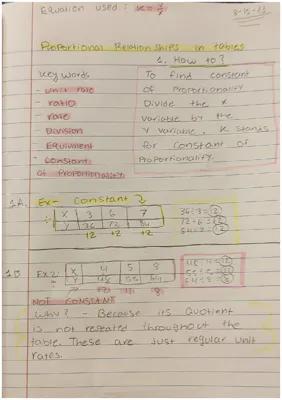 Equation used: k = y/x
Proportional Relationships in tables
1. How to?
Key words
- unit rate
- ratio
- rate
- Division
- Equivalent
- Constant
of Proportionality
To find constant
of Proportionality
Divide the x
variable by the
Y variable. K stands
for constant of
Proportionality.
1A. Ex- Constant
X 3 6 7
Y 36 72 84
36÷3=12
72÷6=12
84÷7=12
1B Ex 2: X 4 5 8
Y 48 55 64
48÷4=12
55÷5=11
64÷8=8
NOT CONSTANT
Why? - Because its Quotient
is not repeated throughout the
table. These are just regular unit
rates.